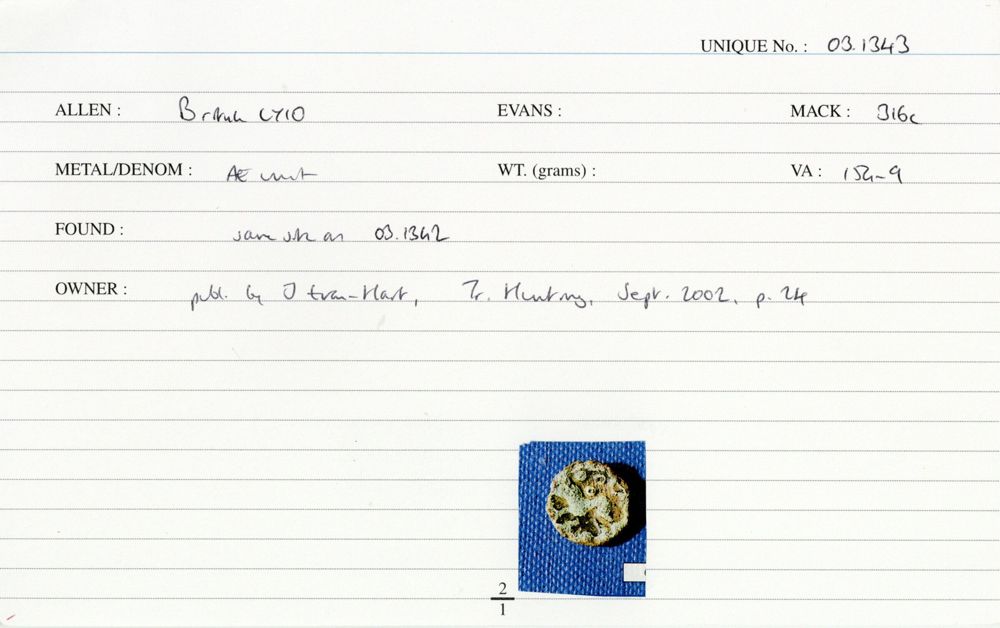 UNIQUE No. : 03.1343
ALLEN : British LY10 EVANS : MACK : 316c
METAL/DENOM : AE unit WT. (grams) : VA : 154-9
FOUND : same site as 03.1342
OWNER : publ. by J Evan-Hart, Tr. Hunting, Sept. 2002, p. 24
2
1